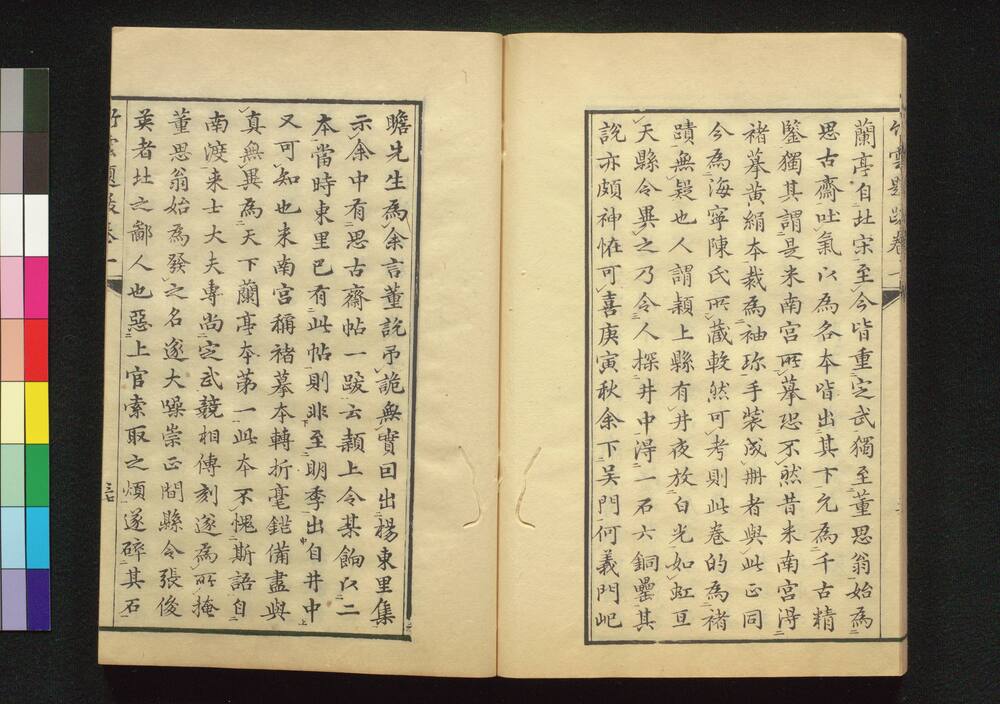 蘭亭自北宋至今皆重定武獨至董思翁始為
思古齋吐氣以為各本皆出其下允為千古精
鑒獨其謂是米南宮所摹恐不然昔米南宮得
褚摹黃絹本裁為袖珍手裝成冊者與此正同
今為海寧陳氏所藏較然可考則此卷的為褚
蹟無疑也人謂潁上縣有井夜放白光如虹亘
天縣令異之乃令人探井中得一石六銅罍其
說亦頗神怪可喜庚寅秋余下吳門何義門屺
瞻先生為余言董說弔詭無實回出楊東里集
示余中有思古齋帖一跋云潁上令某餉以二
本當時東里已有此帖則非至明季出自井中
又可知也米南宮稱褚摹本轉折毫鋩備盡與
真無異為天下蘭亭本第一此本不愧斯語自
南渡来士大夫專尚定武競相傳刻遂為所掩
董思翁始為發之名遂大噪崇正間縣令張俊
英者北之鄙人也惡上官索取之煩遂碎其石
竹雲題跋卷一